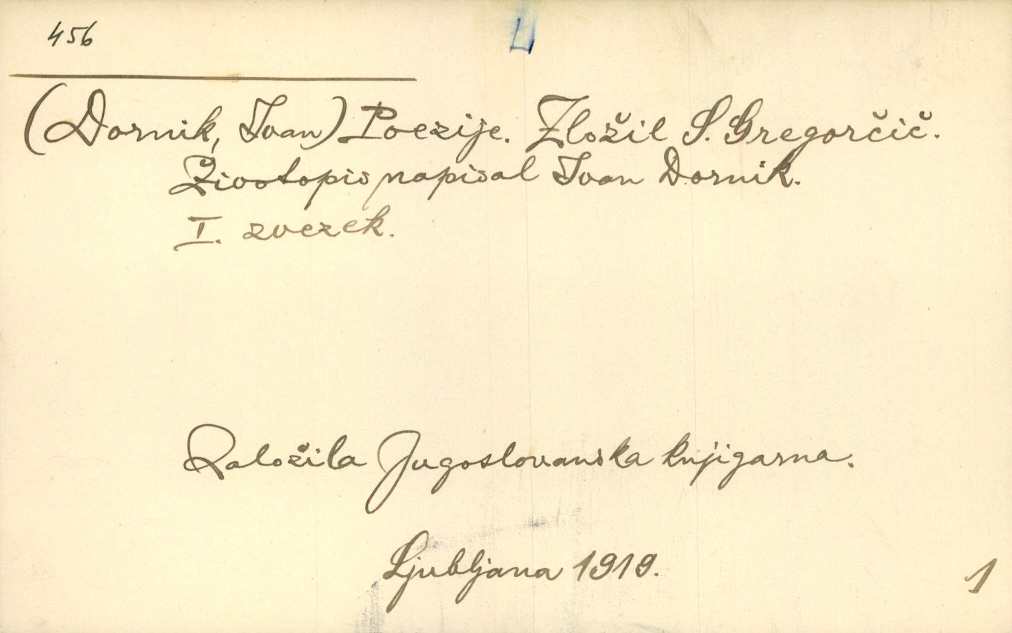 456
L
(Dornik, Ivan) Poezije. Zložil S. Gregorčič.
Životopis napisal Ivan Dornik.
I. zvezek.
Založila Jugoslovanska knjigarna.
Ljubljana 1919.
1